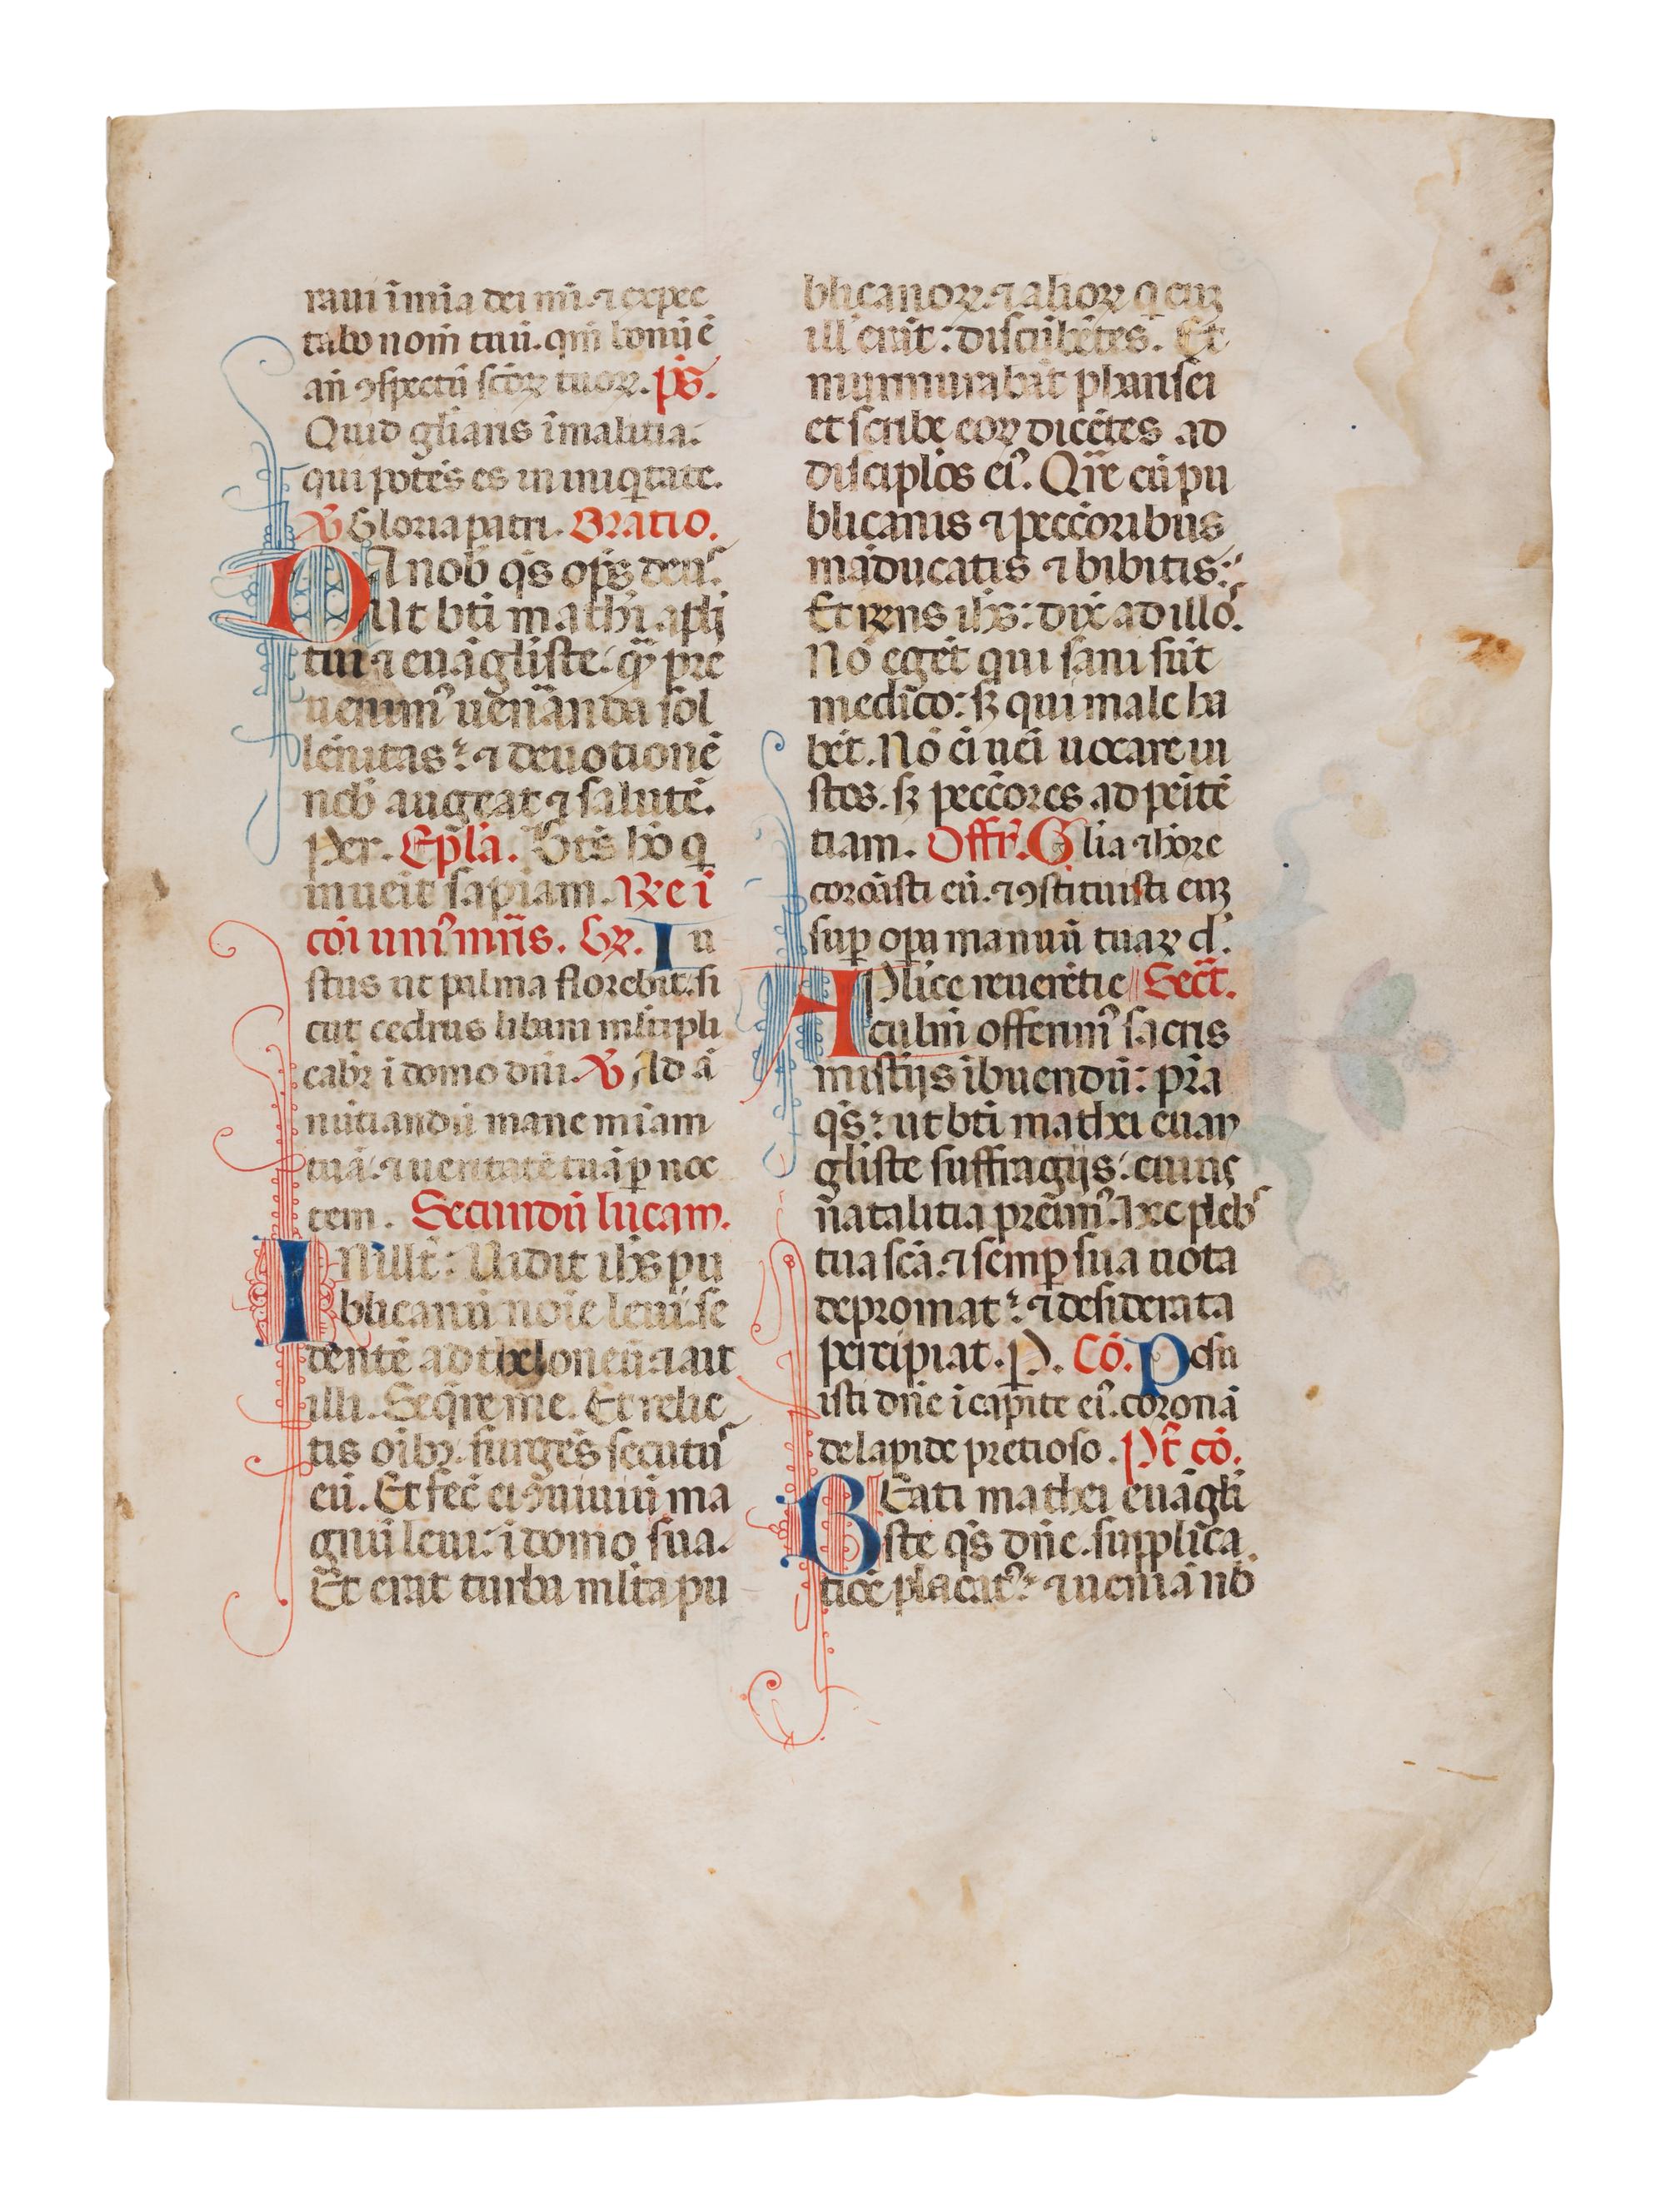 raui ī mīa dei mī. ⁊ expec
tabo nom̄ tuū. qm̄ bonū ē
an̄ ꝯspectū sc̄oꝝ tuoꝝ. pš.
Quid gl̄iaris ī malitia:
qui potēs es in iniq̄tate.
℣ Gloria patri. Oratio.
DA nob̄ qš op̄s deus.
Ut bt̄i mathi apl̄i
tui ⁊ euāgliste: q̄ pre
uenimꝰ uen̄anda sol
lēnitas: ⁊ deuotionē
nob̄ augeat ⁊ salutē.
Per. Ep̄la. Bt̄s hō q̄
inueīt sapīam. Re ī
cōi uniꝰ mr̄is. Gꝝ. Iu
stus ut palma florebit. si
cut cedrus libani ml̄tipli
cabiꝝ ī domo dn̄i. ℣ Ad ā
nūtiandū mane mīam
tuā: ⁊ ueritatē tuā ꝑ noc
tem. Secundū lucam.
IN ill̄ t̄: Uidit ih̄s pu
blicanū noīe leui: se
dentē ad theloneū: ⁊ ait
illi. Seq̄re me. Et relic
tis oīb; surgēs secutus
eū. Et fec̄ ei ꝯuiuiū ma
gnū leui: ī domo sua.
Et erat turba ml̄ta pu
blicanoꝝ. ⁊ alioꝝ q̄ cuꝫ
ill̄ erāt: discūbētes. Et
murmurabāt pharisei
et scribe eoꝝ dicētes ad
discipl̄os eiꝰ. Qr̄e cū pu
blicanis ⁊ pecc̄oribus
māducatis ⁊ bibitis:
Et rn̄s ih̄s: dix̄ ad illos.
Nō egēt qui sani sūt
medico: sꝫ qui male ha
bēt. Nō eī ueī uocare iu
stos. sꝫ pecc̄ores ad pēitē
tiam. Offr̄. Gl̄ia ⁊ hōre
coronāsti eū. ⁊ ꝯstituisti euꝫ
suꝑ oꝑa manuū tuaꝝ d̄.
APl̄ice reuerētie Secr̄t.
culm̄ offerimꝰ sacris
mistijs ībuendū: pr̄a
qš: ut bt̄i mathei euan
gliste suffragijs: cuius
natalitia preīmꝰ. hec plebs
tua sc̄a. ⁊ semꝑ sua uota
depromat: ⁊ desiderata
percipiat. P. Cō. Posu
isti dn̄e ī capite eiꝰ. coronā
de lapide pretioso. Pt̄ cō.
BEati mathei euāgli
ste qš dn̄e. supplica
tiōe placatꝰ: ⁊ ueniā nob̄